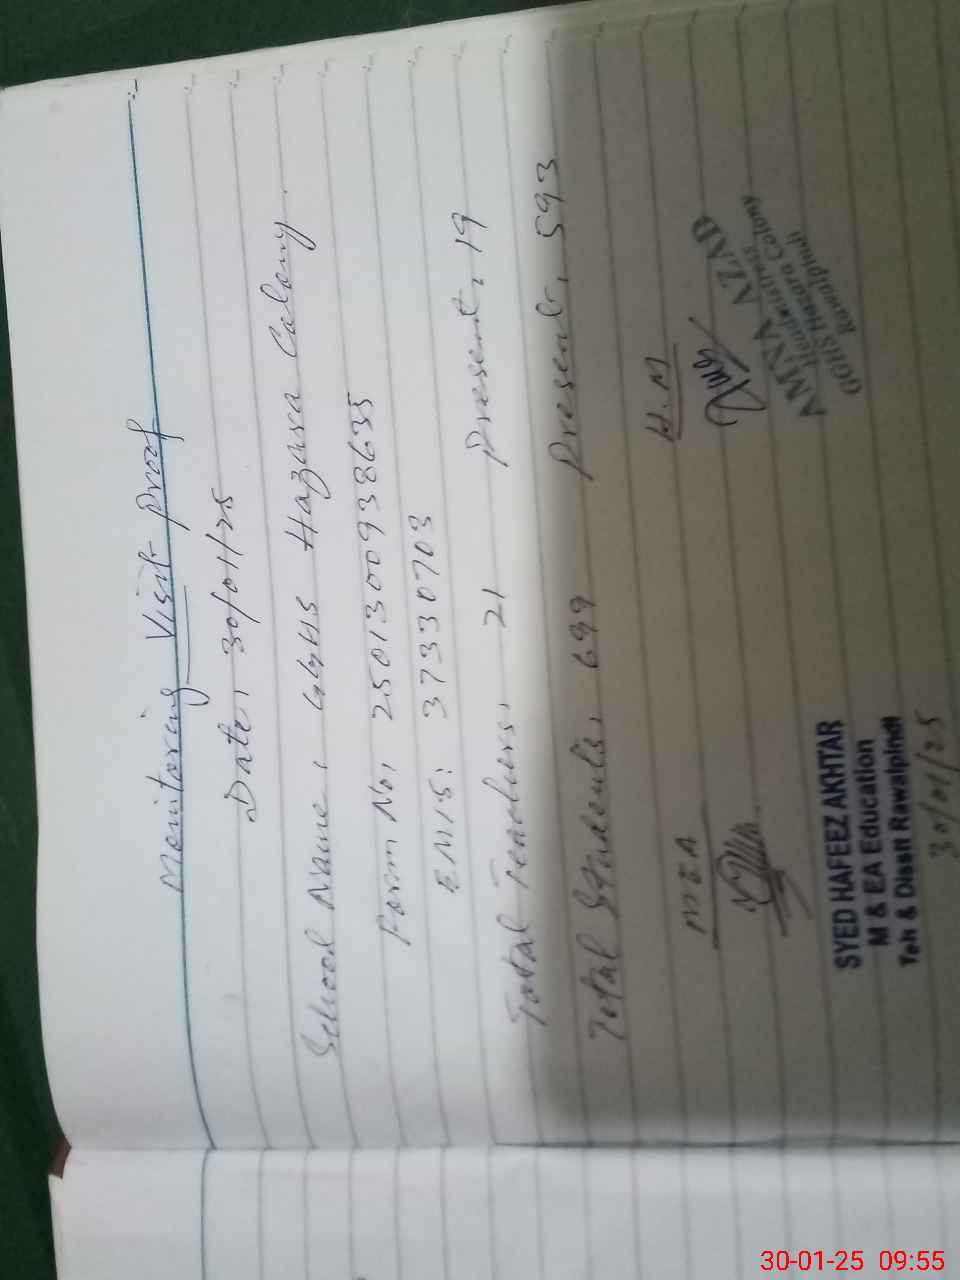 Monitoring Visit Proof
Date, 30/01/25
School Name, GGHS Hazara Colony.
Form No, 2501300938635
EMIS: 37330703
Total Teachers, 21 Present, 19
Total Students, 699 Present, 593
MEA H.M
AMNA AZAB
Headmistress
GGHS Hazara Colony
Rawalpindi
SYED HAFEEZ AKHTAR
M & EA Education
Teh & Disstt Rawalpindi
30/01/25
30-01-25 09:55